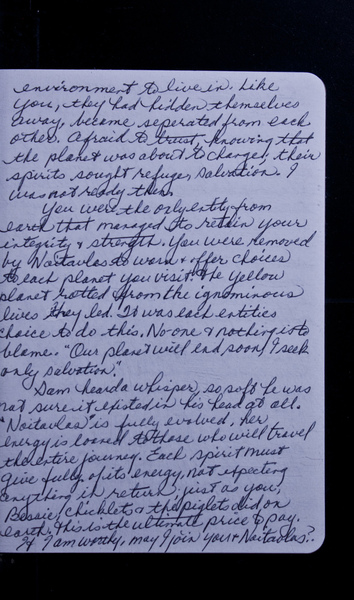 environment to live in. Like
you, they had hidden themselves
away, became seperated from each
other. Afraid to trust, knowing that
the planet was about to change, their
spirits sought refuge, salvation. I
was not ready then.
You were the only entity from
earth that managed to retain your
integrity & strength. You were removed
by Naitavlas to warn & offer choices
to each planet you visit. The yellow
planet rotted from the ignominous
lives they led. It was each entities
choice to do this. No one & nothing is to
blame. "Our planet will end soon, I seek
only salvation."
Sam heard a whisper, so soft he was
not sure it existed in his head at all.
"Naitavlas" is fully evolved, her
energy is loaned to those who will travel
the entire journey. Each spirit must
give fully of its energy, not expecting
anything in return, just as you,
Bessie, chicklets & the piglets did on
earth. This is the ultimate price to pay.
If I am worthy, may I join you & Naitavlas?.